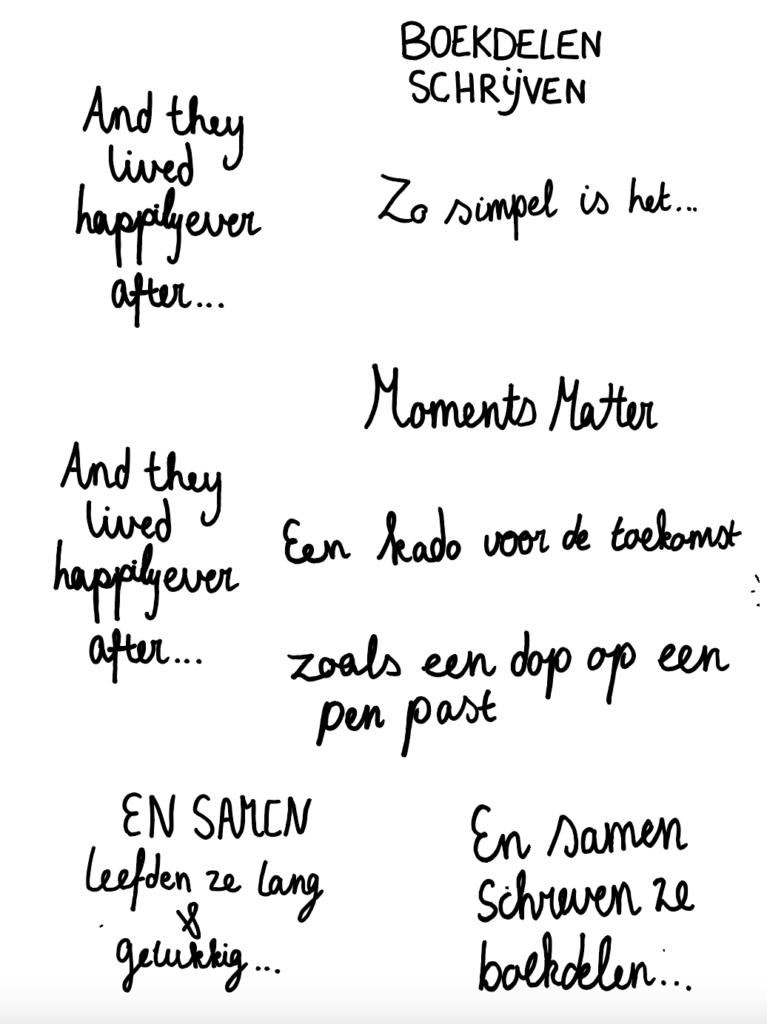 BOEKDELEN
SCHRIJVEN
And they
lived
happily ever
after...
Zo simpel is het...
Moments Matter
And they
lived
happily ever
after...
Een kado voor de toekomst
zoals een dop op een
pen past
EN SAMEN
leefden ze lang
&
gelukkig...
En samen
schreven ze
boekdelen...